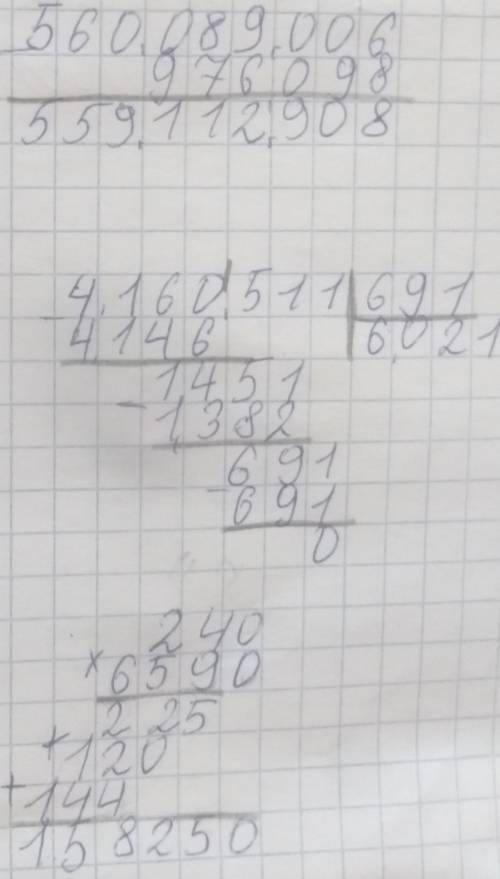 560.089.006
976098
559.112.908
- 4.160.511 | 691
4146 6.021
1451
- 1.382
691
- 691
0
240
× 6590
225
+ 120
+ 144
1.58250